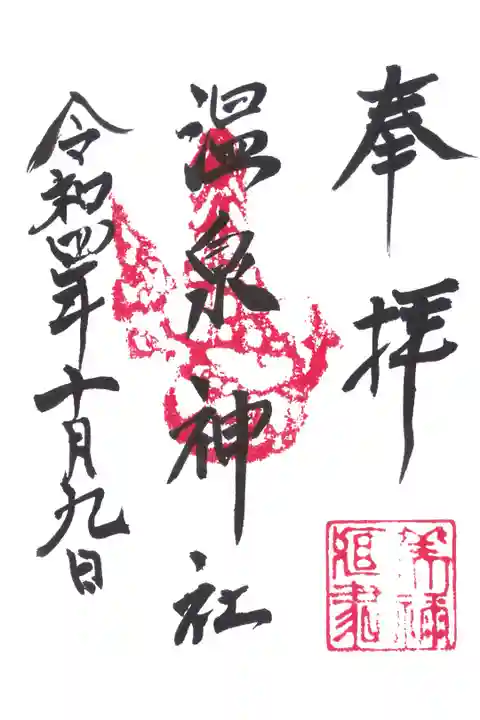 奉拝
温泉神社
令和四年十月九日